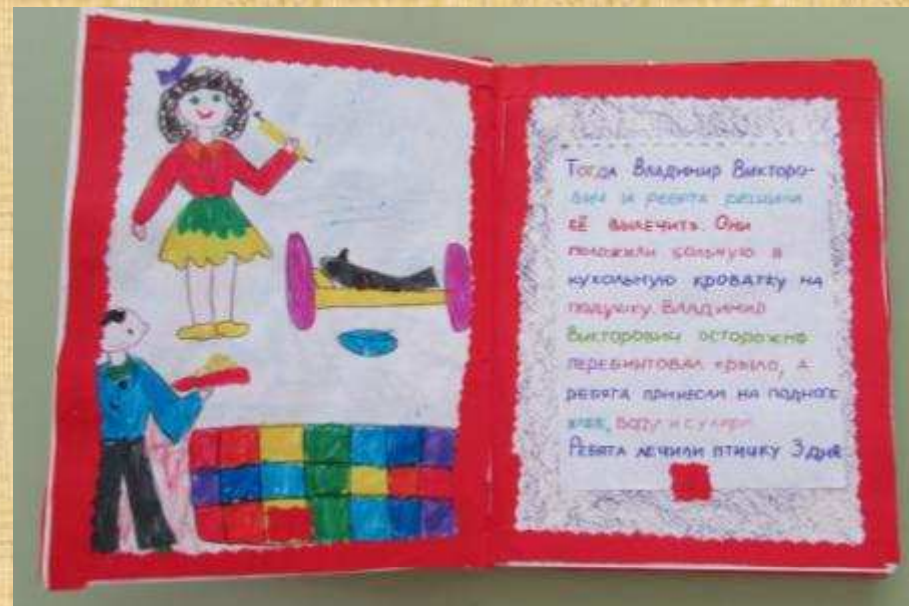 Тогда Владимир Викторо-
вич и ребята решили
её вылечить. Они
положили больную в
кукольную кроватку на
подушку. Владимир
Викторович осторожно
перебинтовал крыло, а
ребята принесли на поднос
хлеб, воду и сухари.
Ребята лечили птичку 3 дня